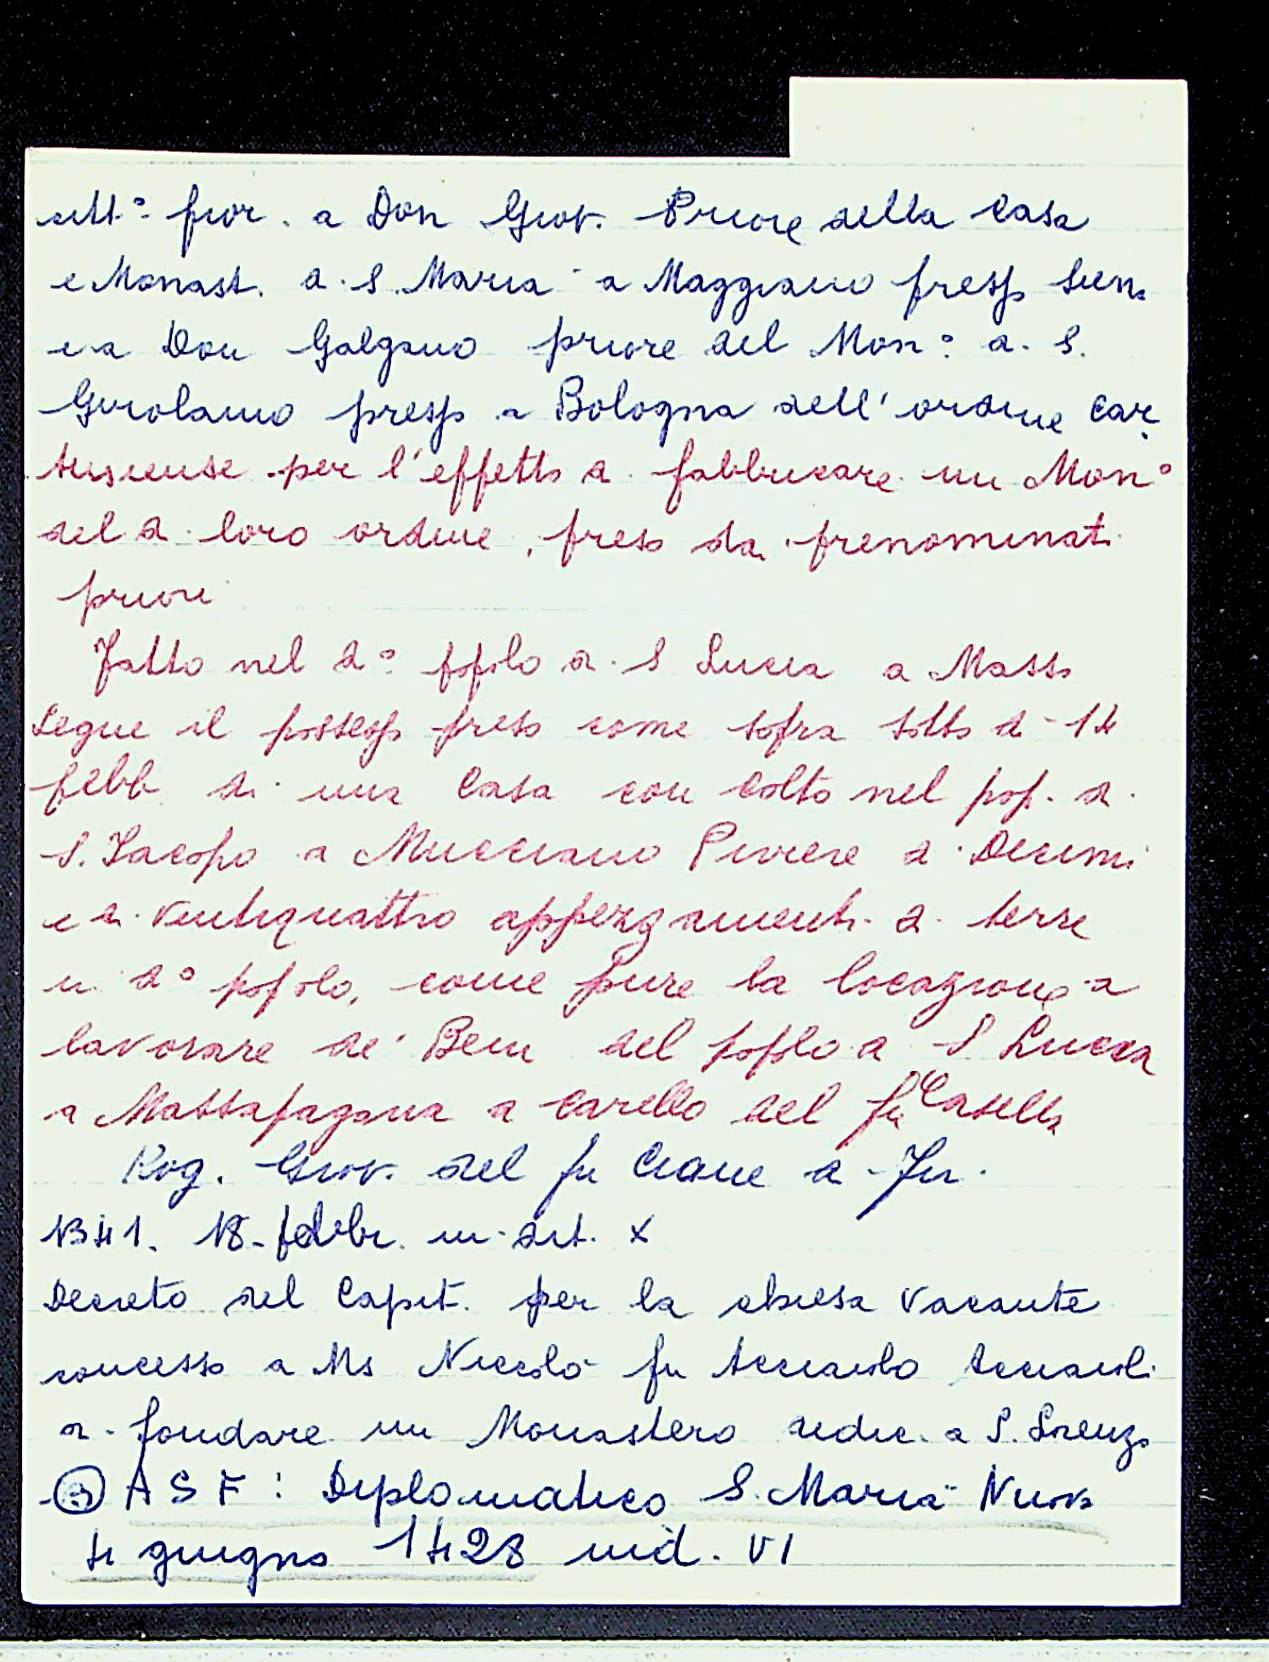 citt° fior. a Don Giov. Priore della Casa
e Monast. di S. Maria a Maggiano presso Siena
e a Don Galgano priore del Mon° di S.
Girolamo presso a Bologna dell'ordine Car
tusiense per l'effetto di fabbricare un Mon°
del d. loro ordine, preso da prenominati
priori
Fatto nel d° popolo di S Lucia a Massa
Segue il possesso preso come sopra sotto dì 14
febb. di una Casa con Colto nel pop. di
S. Jacopo a Mucciano Piviere di Decimi
e di ventiquattro appezzamenti di terre
in d° popolo, come pure la locazione a
lavorare de' Beni del popolo di S Lucia
a Massapagana a Carello del fu Casella
Rog. Giov. del fu Cione di Fir.
1341. 18. febbr. in dit. X
Decreto del Capit. per la chiesa vacante
concesso a Ms Niccolò fu Acciaiolo Acciaioli
di fondare un Monastero dedic. a S. Lorenzo
(3) A S F : Diplomatico S. Maria Nuova
4 giugno 1428 ind. VI